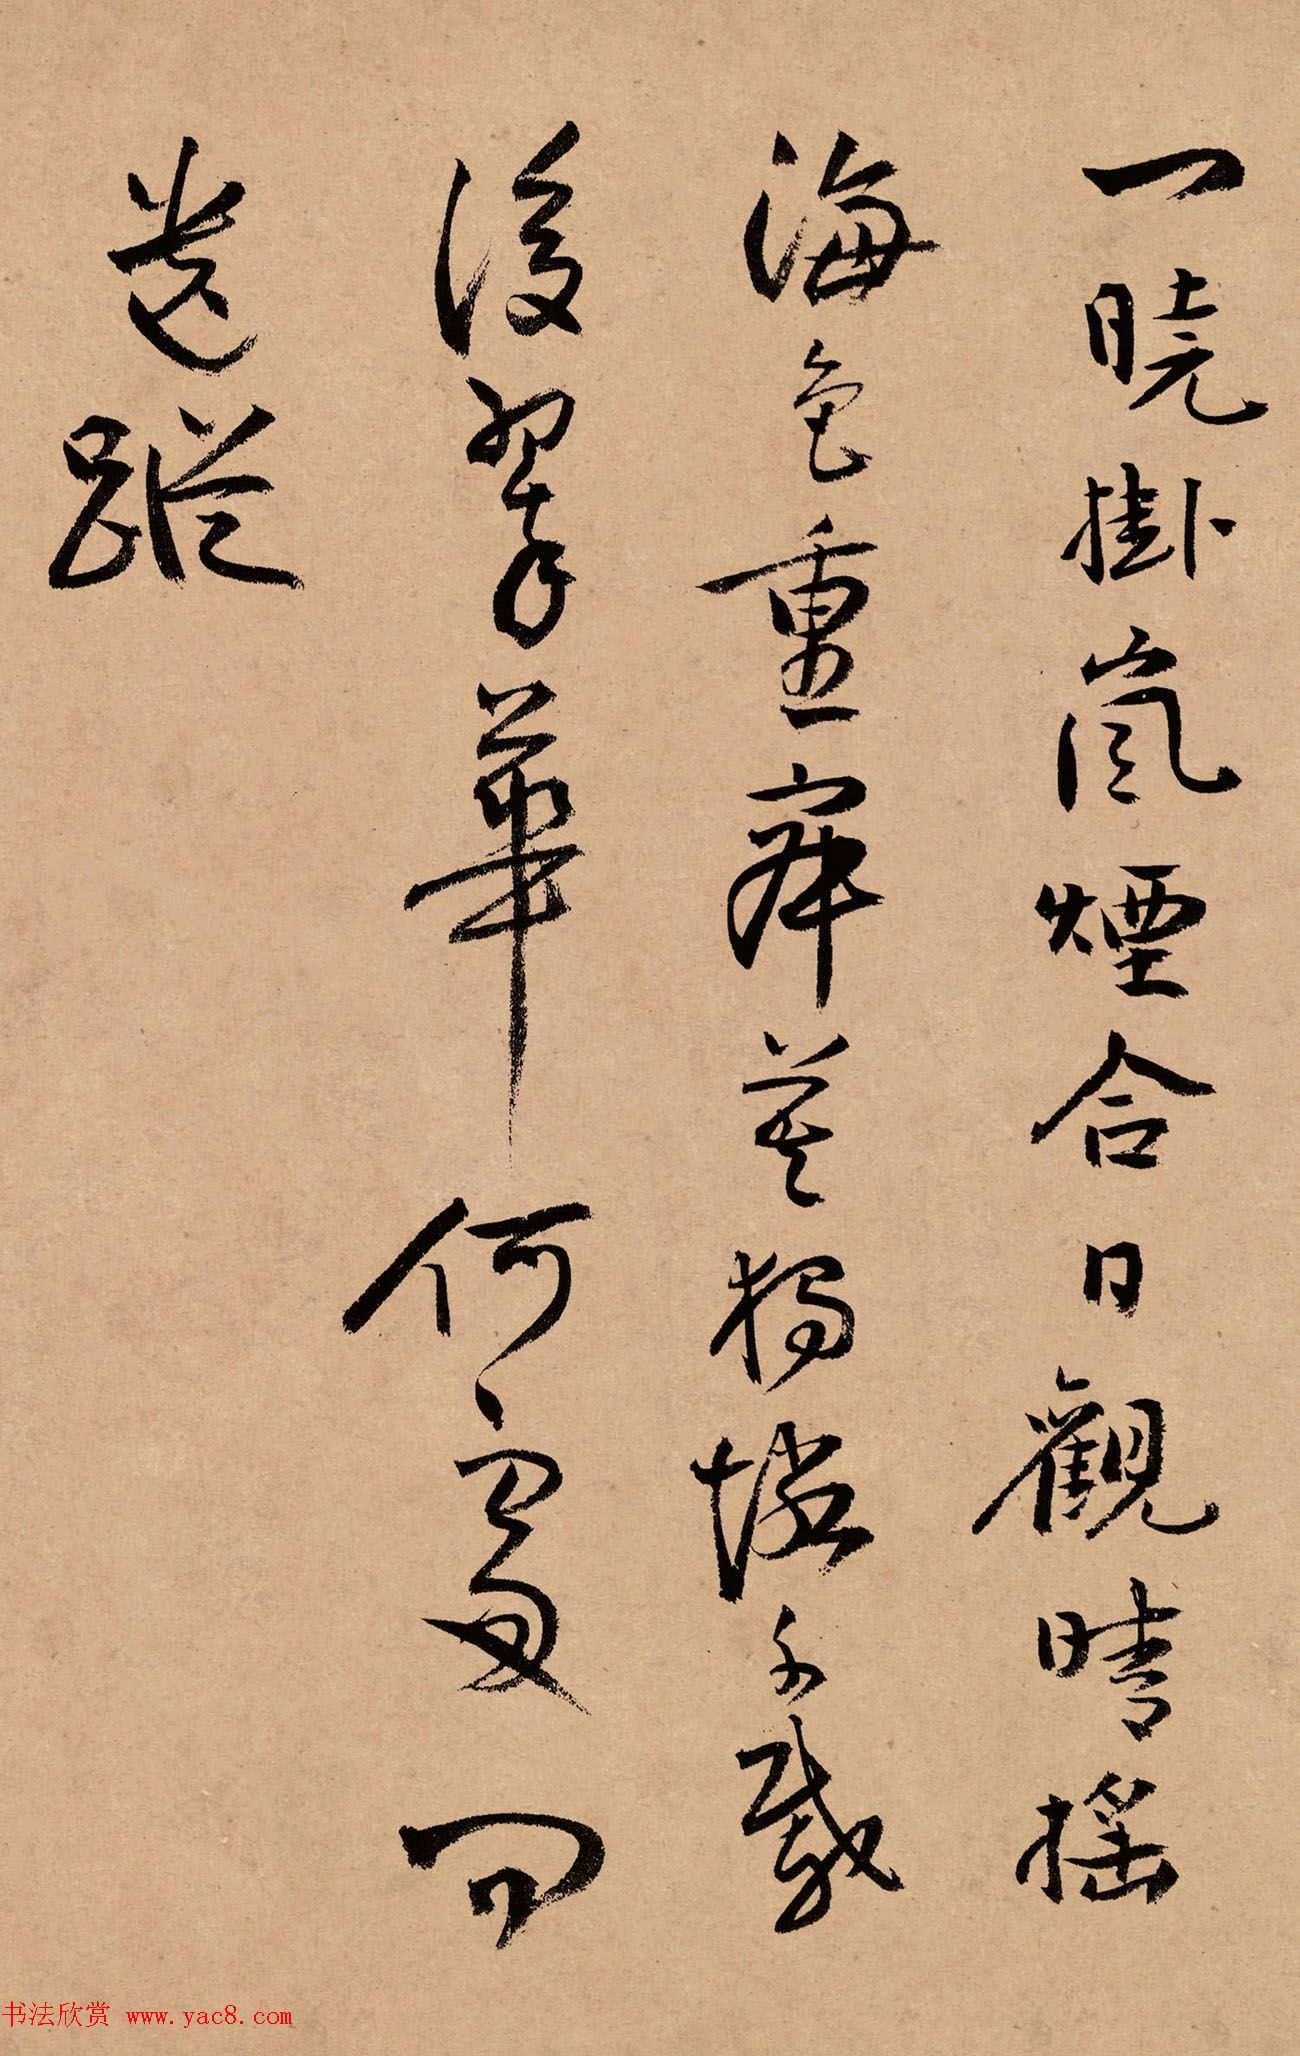 一曉掛嵐煙合日觀晴搖
海色重寂莫獨憐千載
後翠華何處問
遺蹤
书法欣赏 www.yac8.com